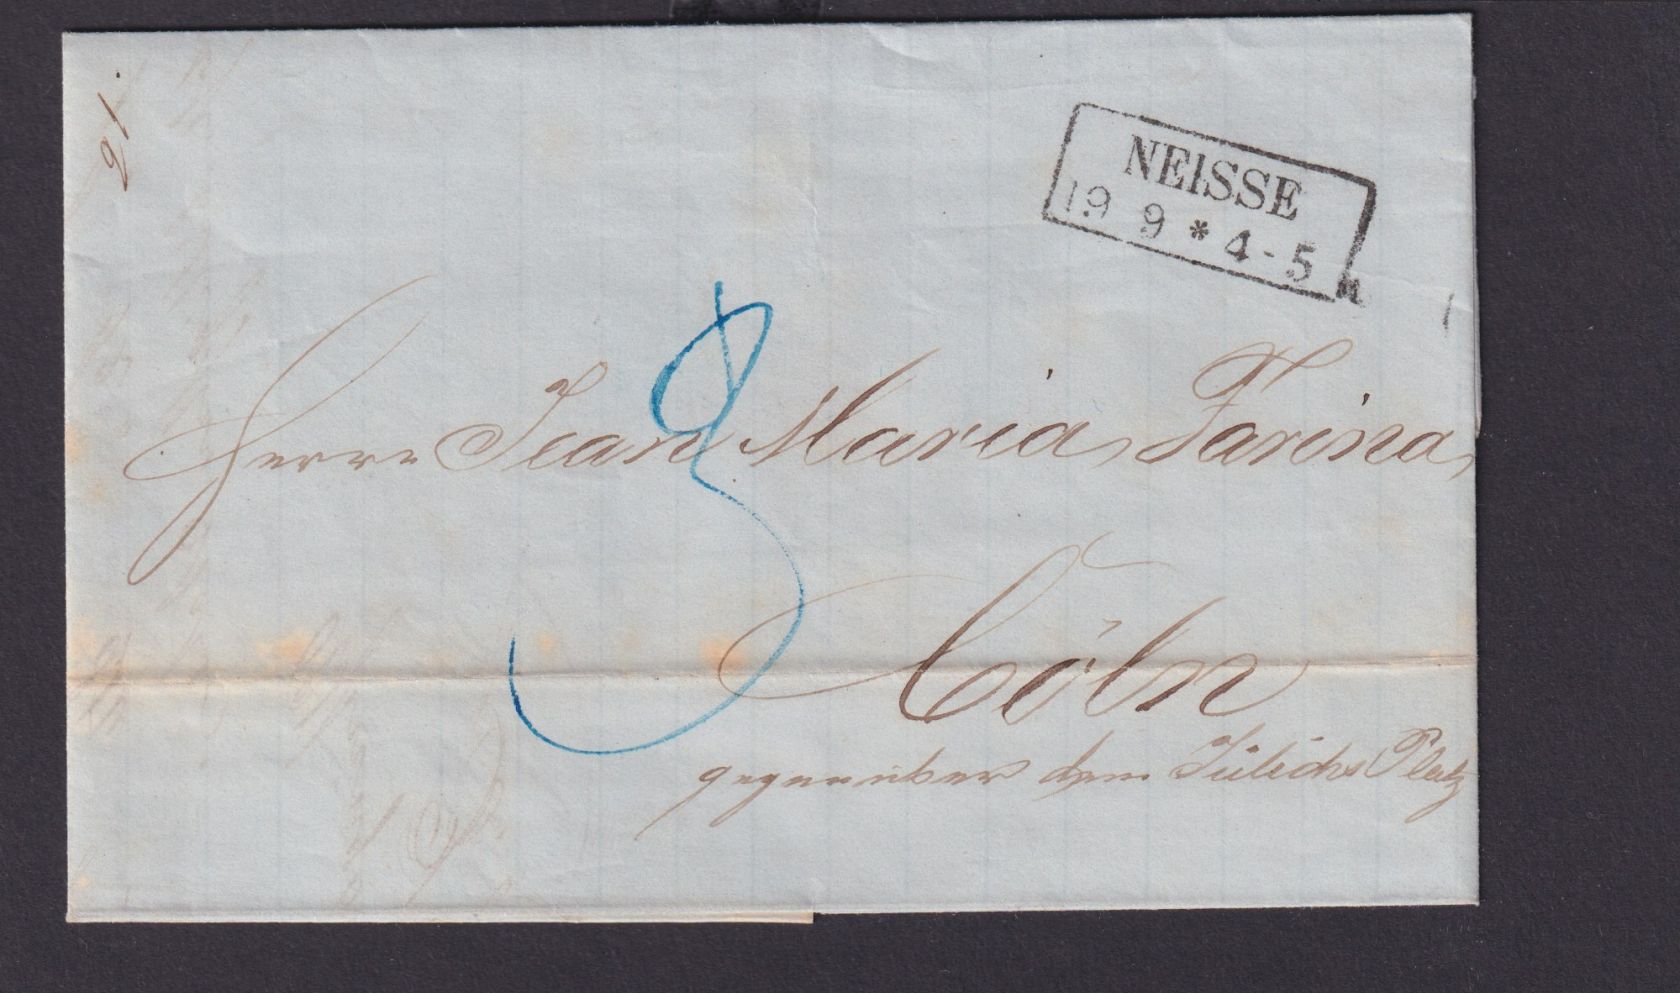 21.
NEISSE
19 9 * 4-5
3
Herrn Jean Maria Farina
Cöln
gegenüber dem Jülichs Platz